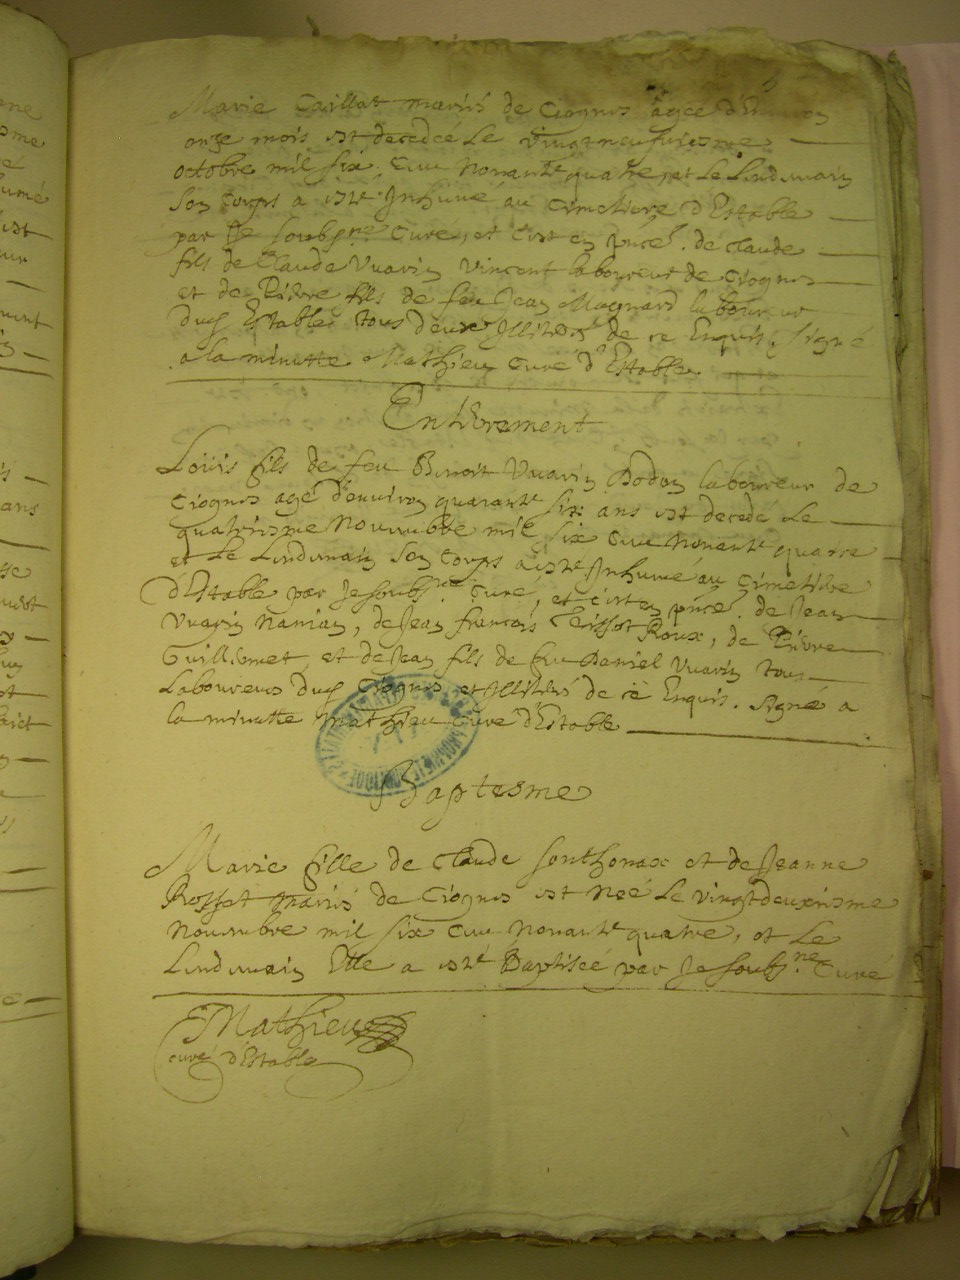 Marie Caillat mariés de Ciognes agée d'Environ
onze mois est decedeé Le vingtneufviesme
octobre mil six Cent Nonante quatre, et Le Lendemain
Son Corps a esté Inhumé au Cimetiere d'Estable
par Je soubsne Curé, et C'est en pnce de Claude
fils de Claude Vuarin Vincent laboureur de Ciognes
et de Pierre fils de feu Jean Magnard laboureur
dud Estable tous deux Illiterés de ce Enquis. signé
a la minutte Mathieu Curé d'Estable.
Enterrement
Loüis fils de feu Benoit Vuarin Bodon laboureur de
Ciognes agé d'environ quarante six ans est decedé Le
quatriesme Novembre mil six Cent Nonante quatre
et Le Lendemain son Corps a esté Inhumé au Cimetiere
d'Estable par Je soubsne Curé, et C'est en pnce de Jean
Vuarin Nanian, de Jean francois Tissot Roux, de Pierre
Guillermet, et de Jean fils de feu Daniel Vuarin tous
Laboureurs dud Ciognes et Illiterés de cè Enquis. Signé a
la minutte Mathieu Curé d'Estable
Baptesme
Marie fille de Claude Sonthonax et de Jeanne
Rosset mariés de Ciognes est Neé Le vingtdeuxiesme
Novembre mil six Cent Nonante quatre, et Le
Lendemain Elle a esté Baptiseé par Je soubsne Curé
Mathieu
curé d'Estable